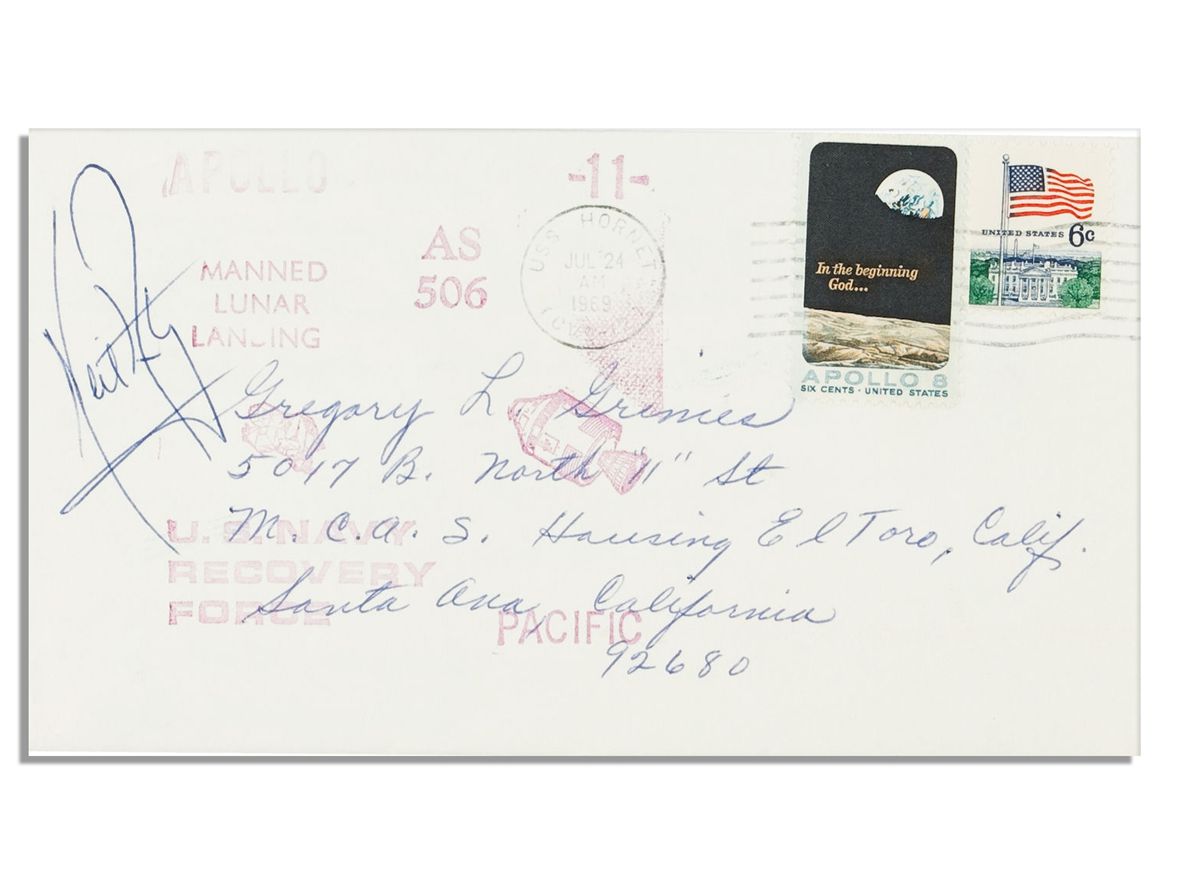 APOLLO -11-
AS
506
MANNED
LUNAR
LANDING
USS HORNET
JUL 24
AM
1969
In the beginning
God...
APOLLO 8
SIX CENTS · UNITED STATES
UNITED STATES 6c
Gregory L. Grenies
5017 B. North "11" St
M. C. A. S. Housing El Toro, Calif.
Santa Ana, California
92680
U.S. NAVY
RECOVERY
FORCE
PACIFIC